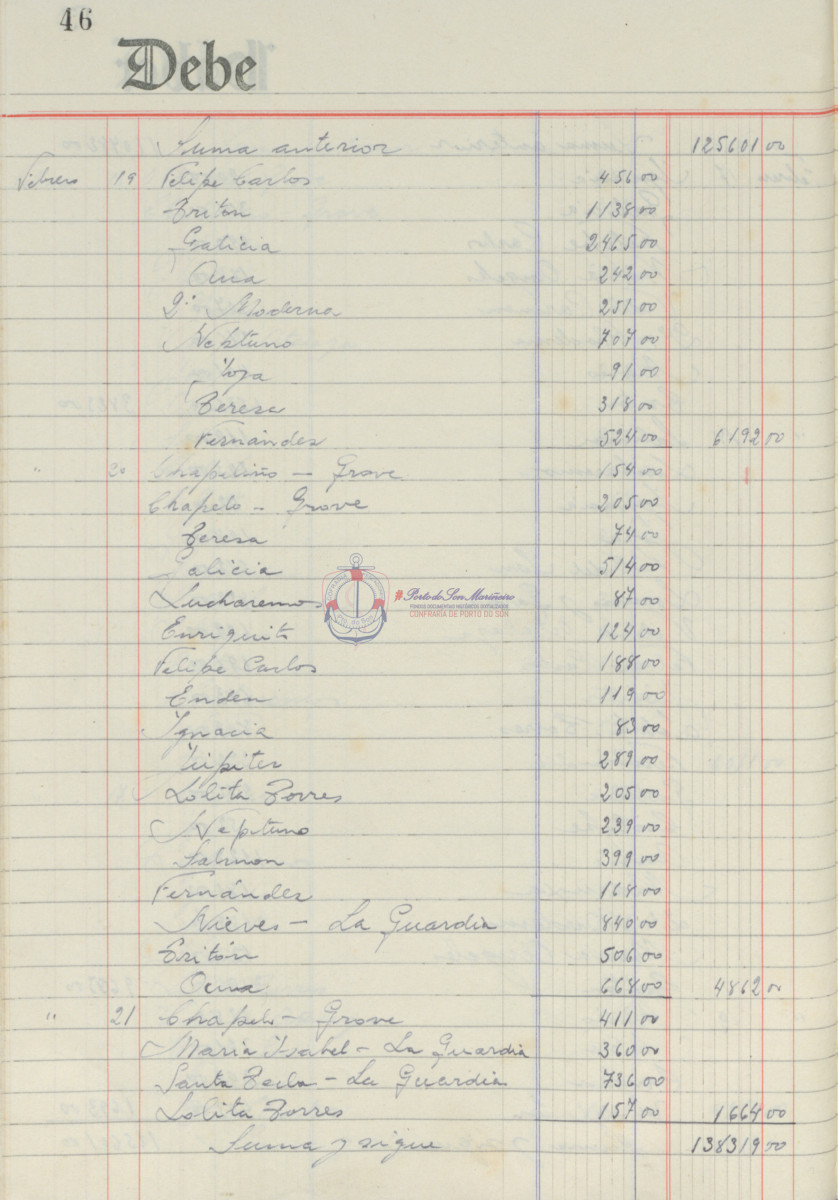 46
Debe
Suma anterior 125601 00
Febrero 19 Felipe Carlos 456 00
Triton 1138 00
Galicia 2465 00
Ana 242 00
2ª Moderna 251 00
Neptuno 707 00
Toja 91 00
Teresa 318 00
Fernández 524 00 6192 00
" 20 Chapeliño - Grove 154 00
Chapelo - Grove 205 00
Teresa 74 00
Galicia 514 00
Lucharemos 87 00
Enriquito 124 00
Felipe Carlos 188 00
Enden 119 00
Ignacia 83 00
Júpiter 289 00
Lolita Torres 205 00
Neptuno 239 00
Salmon 399 00
Fernández 168 00
Nieves - La Guardia 840 00
Tritón 506 00
668 00 4862 00
" 21 Chapelo - Grove 411 00
Maria Isabel - La Guardia 360 00
Santa Tecla - La Guardia 736 00
Lolita Torres 157 00 1664 00
Suma y sigue 138319 00
#Porto do Son Mariñeiro
FONDOS DOCUMENTAIS HISTÓRICOS DIXITALIZADOS
CONFRARÍA DE PORTO DO SON
Pto. do Son